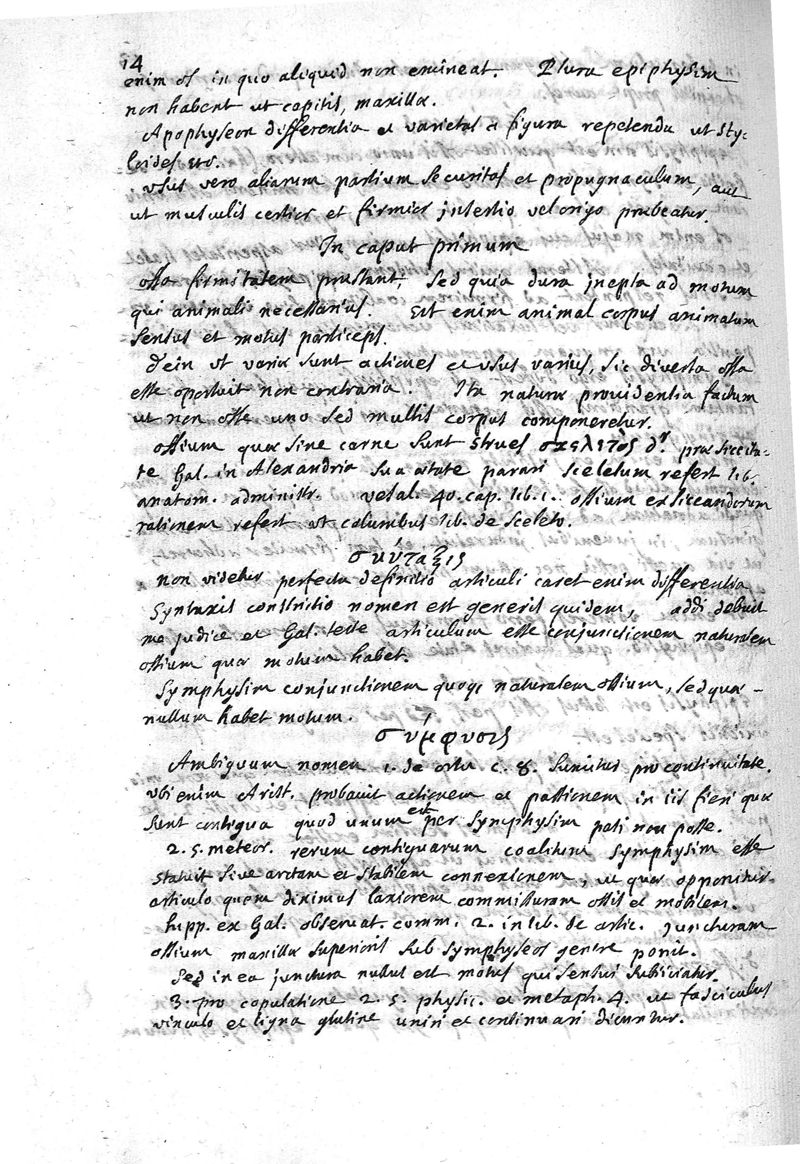 14
enim os in quo aliquid non emineat. Plura epiphysim
non habent ut capitis, maxillæ.
Apophyseon differentia et varietas a figura repetenda ut Sty-
loides etc.
Usus vero aliarum partium securitas et propugnaculum, aut
ut musculis certior et firmior insertio vel origo præbeatur.
In caput primum
ossa firmitatem præstant, sed quia dura inepta ad motum
qui animali necessarius. Est enim animal corpus animatum
sensus et motus particeps.
dein ut variæ sunt actiones et usus varius, sic diversa ossa
esse oportuit non contraria. Ita naturæ providentia factum
ut non osse uno sed multis corpus componeretur.
ossium quæ sine carne sunt strues σκελετὸς dr. præ siccita-
te Gal. in Alexandria sua ætate parari sceletum refert lib.
anatom. administr. vesal. 40. cap. lib. 1. ossium exsiccandorum
rationem refert ut columbus lib. de sceleto.
σύνταξις
non videtur perfecta definitio articuli caret enim differentia
Syntaxis constructio nomen est generis quidem, addi debuit
me judice et Gal. teste articulum esse conjunctionem naturalem
ossium quæ motum habet.
Symphysim conjunctionem quoq; naturalem ossium, sed quæ
nullum habet motum.
σύμφυσις
Ambiguum nomen 1. de ortu c. 8. sumitur pro continuitate.
ubi enim Arist. probavit actionem et passionem in iis fieri quæ
sunt contigua quod unum est per symphysim pati non posse.
2. 5. meteor. rerum contiguarum coalitum symphysim esse
statuit sive arctam et stabilem connexionem, ut quæ opponitur
articulo quem diximus laxiorem commissuram ossis et mobilem.
hipp. ex Gal. observat. comm. 2. in lib. de artic. juncturam
ossium maxillæ superioris sub symphyseos genere ponit.
sed in ea junctura nullus est motus qui sensui subiiciatur.
3. pro copulatione 2. 5. physic. et metaph. 4. ut fasciculus
vinculo et ligna glutine uniri et continuari dicuntur.